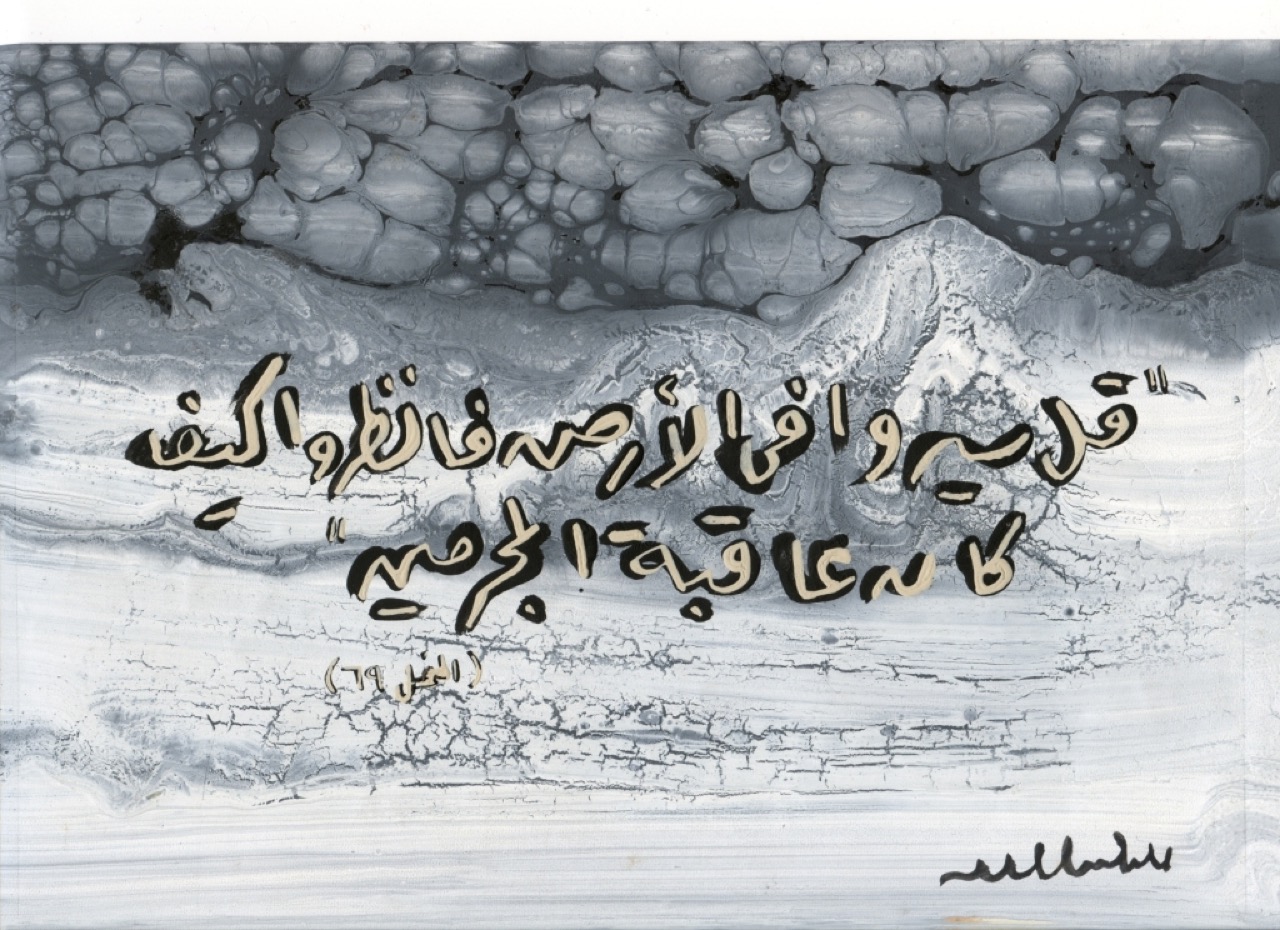 "قل سيروا فى الأرض فانظروا كيف
كان عاقبة المجرمين"
(النمل ٦٩)